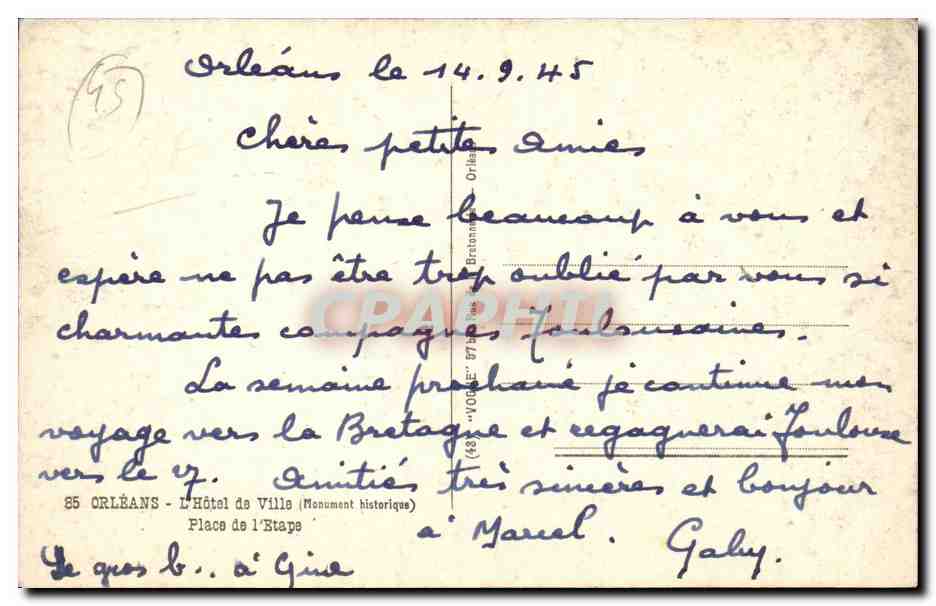 45
Orléans le 14.9.45
Chères petites Amies
Je pense beaucoup à vous et
espère ne pas être trop oublié par vous si
charmantes compagnes Toulousaines.
La semaine prochaine je continue mon
voyage vers la Bretagne et regagnerai Toulouse
vers le 27. Amitiés très sincères et bonjour
à Marcel. Gaby.
85 ORLÉANS - L'Hôtel de Ville (Monument historique)
Place de l'Etape
Le gros b.. à Gine
CPAPHIL
"VOGUE" 57 bis Orléans